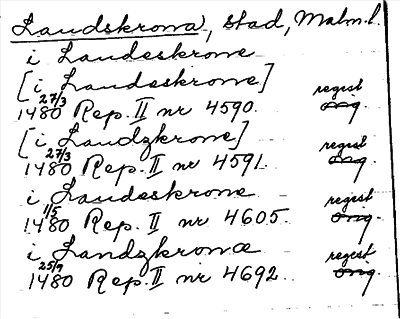 Landskrona, stad, Malm.l.
i Landeskrone
[i Landeskrone]
1480 27/3 Rep. II nr 4590. regist orig.
[i Landzkrone]
1480 27/3 Rep. II nr 4591. regist orig.
i Landeskrone
1480 1/5 Rep. II nr 4605. regist orig.
i Landzkronæ
1480 25/9 Rep. II nr 4692. regist orig.